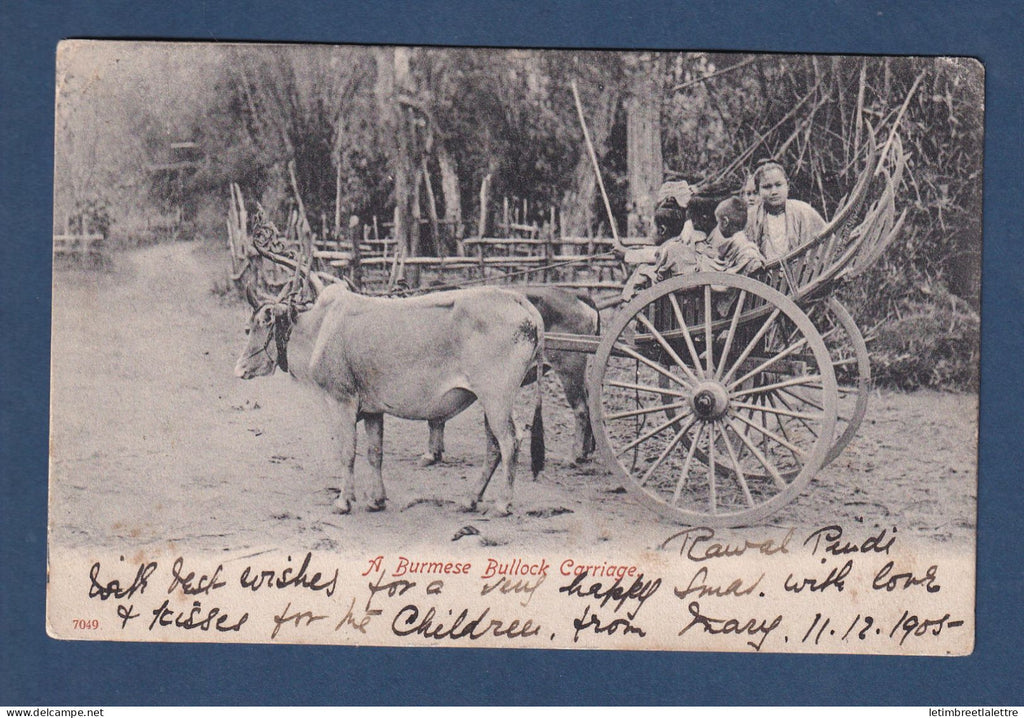 A Burmese Bullock Carriage.
Rawal Pindi
With best wishes for a very happy Xmas. with love
& kisses for the Children. from Mary. 11.12.1905-
7049
letimbreetlalettre
www.delcampe.net